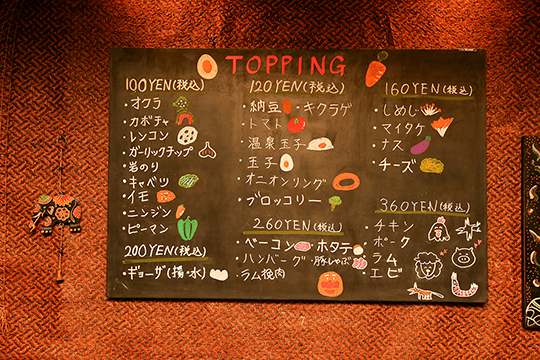 TOPPING
100YEN(税込)
・オクラ
・カボチャ
・レンコン
・ガーリックチップ
・岩のり
・キャベツ
・イモ
・ニンジン
・ピーマン
200YEN(税込)
・ギョーザ(揚・水)
120YEN(税込)
・納豆 ・キクラゲ
・トマト
・温泉玉子
・玉子
・オニオンリング
・ブロッコリー
260YEN(税込)
・ベーコン ・ホタテ
・ハンバーグ ・豚しゃぶ
・ラム挽肉
160YEN(税込)
・しめじ
・マイタケ
・ナス
・チーズ
360YEN(税込)
・チキン
・ポーク
・ラム
・エビ